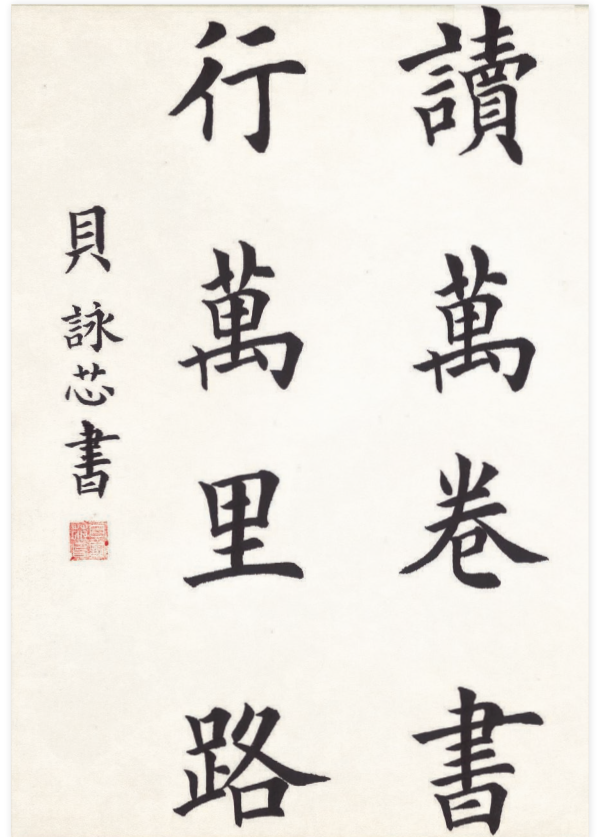 讀萬卷書
行萬里路
貝詠芯書